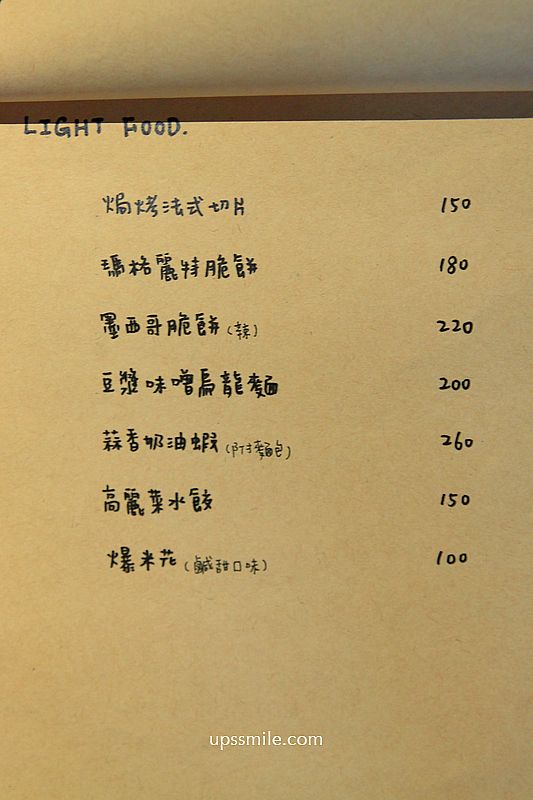 LIGHT FOOD.
焗烤法式切片 150
瑪格麗特脆餅 180
墨西哥脆餅(辣) 220
豆漿味噌烏龍麵 200
蒜香奶油蝦(附麵包) 260
高麗菜水餃 150
爆米花(鹹甜口味) 100
upssmile.com